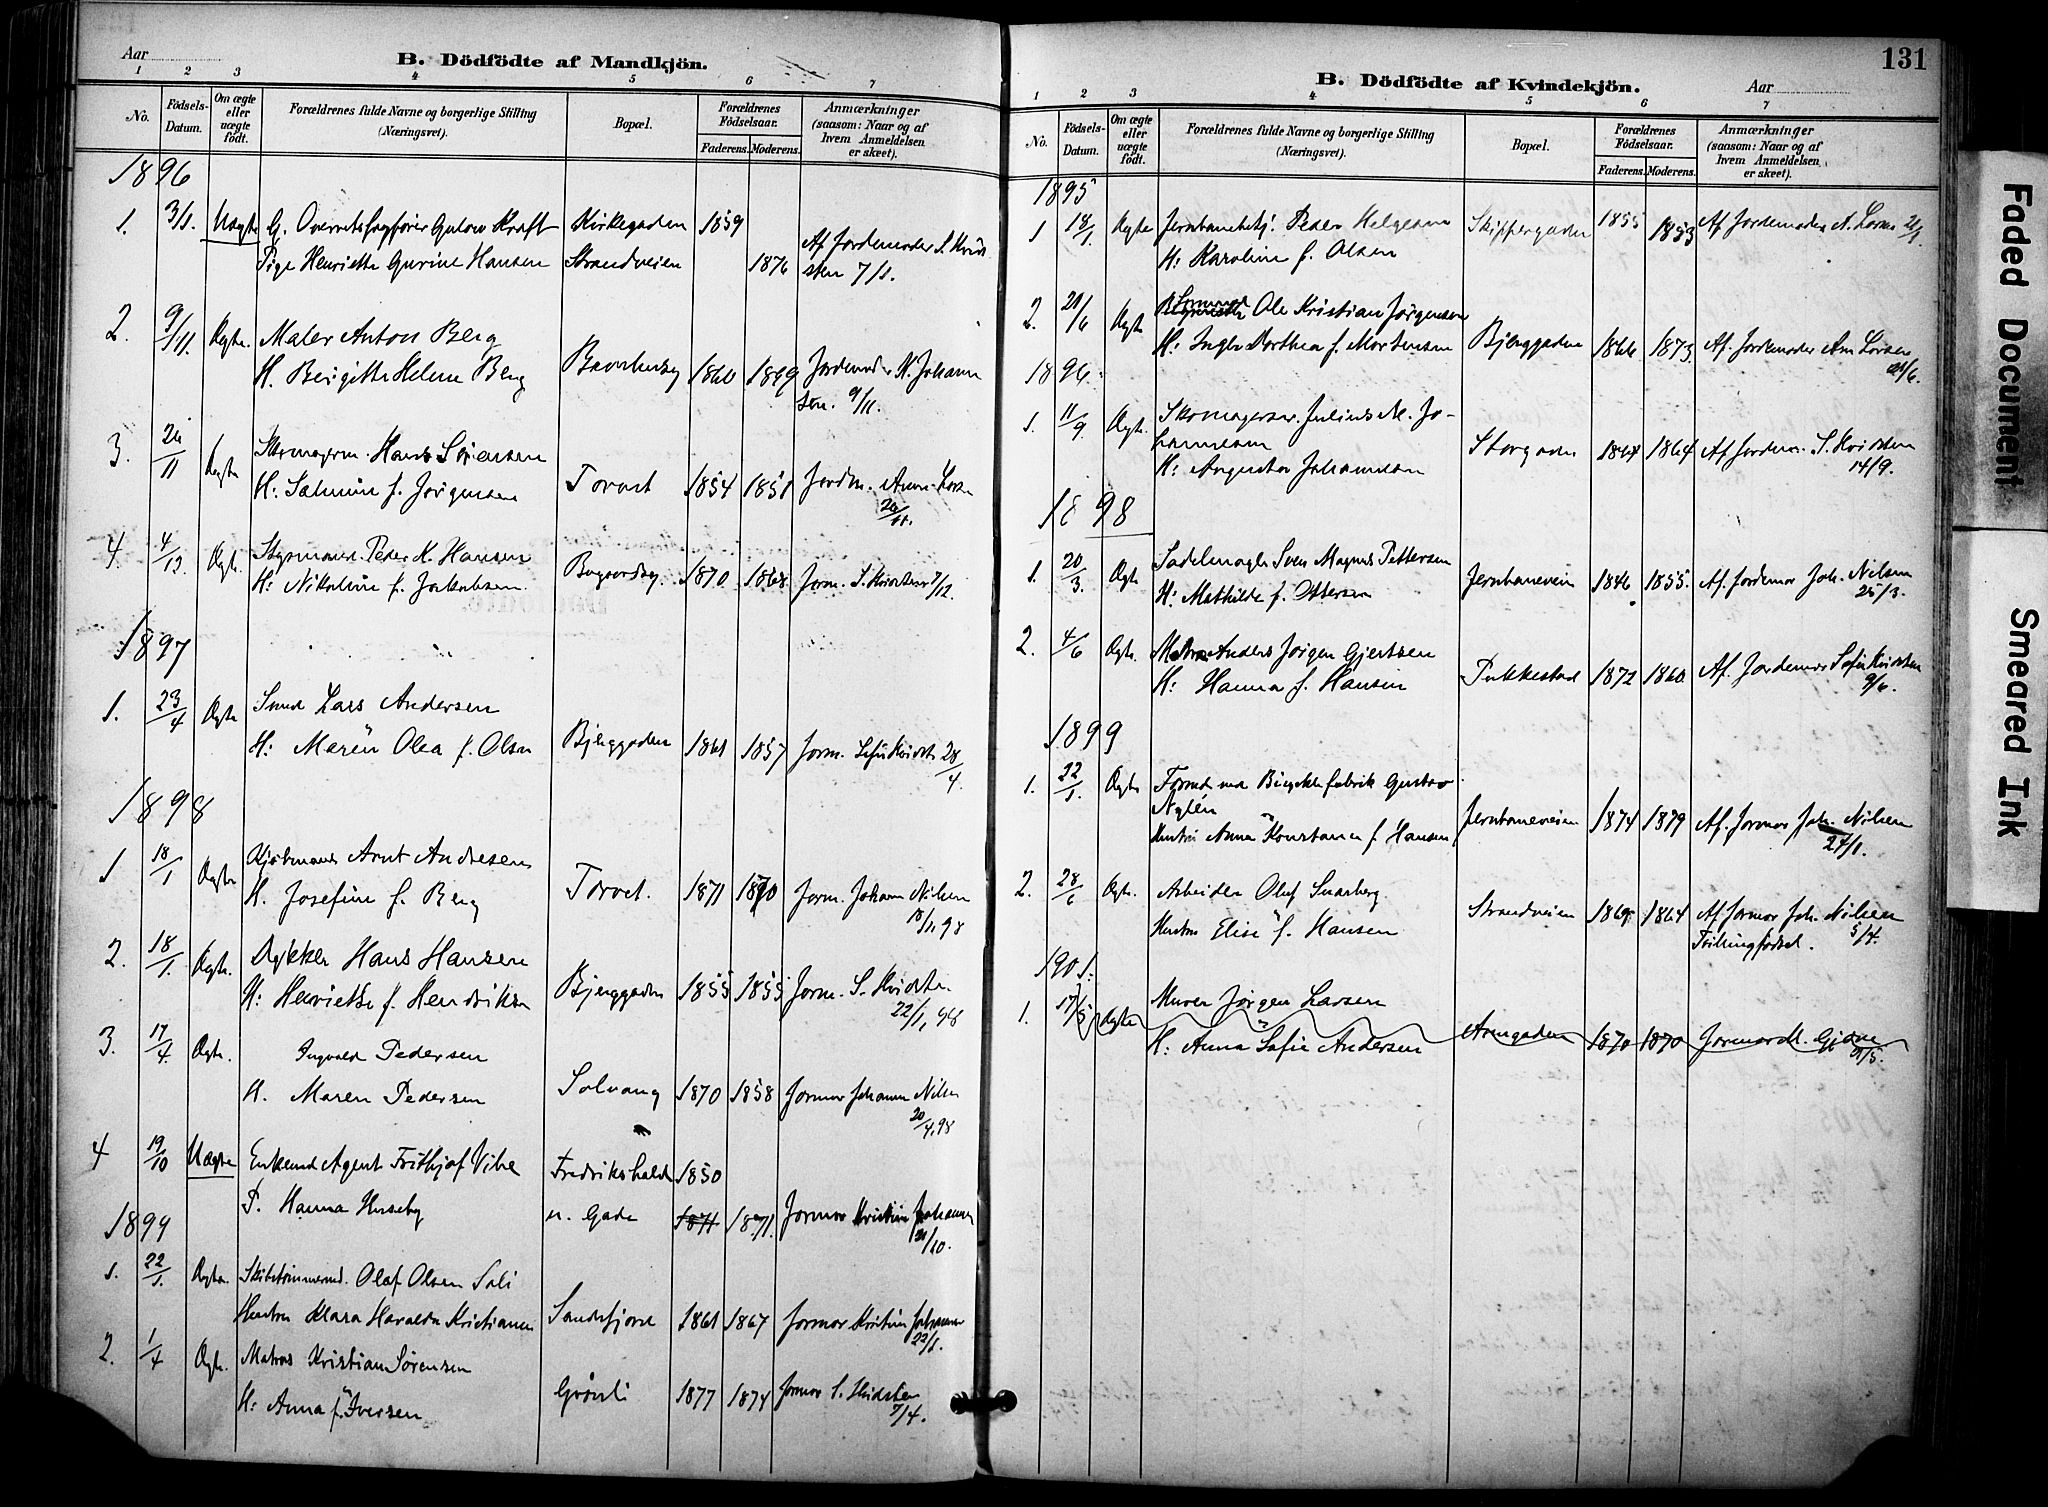 Aar
B. Dödfödte af Mandkjön.
1 2 3 4 5 6 7
No.
Födsels-Datum.
Om ægte eller uægte födt.
Forældrenes fulde Navne og borgerlige Stilling (Næringsvei).
Bopæl.
Forældrenes Födselsaar.
Faderens. Moderens.
Anmærkninger (saasom: Naar og af hvem Anmeldelsen er skeet).
1896
1. 3/1. Uægte G. Overretssagfører Gulow Kraft Kirkegaden 1859
Pige Henriette Gurine Hansen Strandveien 1876 Af Jordemoder S. Kvidsten 7/1.
2. 9/11. Ægte. Maler Anton Berg
H. Bergitte Helene Berg 1860 1869 Jordemoder K. Johannsen. 9/11.
3. 26/11 Ægte Skomagerm. Hans Sørensen
H: f. Jørgensen Torvet 1854 1851 Jordm. Anne Larsen 26/11.
4 4/12. Ægte Styrmand Peder K. Hansen
H: Nikoline f. Jakobsen 1870 1868 Jorm. S. Kvidsten 7/12.
1897
1. 23/4 Ægte Smed Lars Andersen
H: Maren Olea f. Olsen Bjerggaden 1861 1857 Jorm. Sofie Kvidst. 28/4.
1898
1 18/1 Ægte Kjøbmand Arnt Andresen
H. Josefine f. Berg Torvet. 1871 1870 Jorm. Johanne Nilsen 18/1, 98
2. 18/1. Ægte. Dykker Hans Hansen
H: Henriette f. Hendriksen Bjerggaden 1855 1855 Jorm. S. Kvidsten 22/1, 98
3. 17/4 Ægte. Ingvald Pedersen
H. Maren Pedersen Solvang 1870 1858 Jormor Johanne Nilsen 20/4, 98
4 19/10 Uægte Enkemd Agent Frithjof Vibe Fredrikshald 1850
P. Hanna Huseby n. Gade 1871 1871. Jormor Kristine Johannes 21/10.
1899
1. 22/1. Ægte. Skibstømmermd. Olaf Olsen Soli
Hustru Klara Haralda Kristiansen Sandefjord 1861 1867 Jormor Kristine Johannes 22/1.
2. 1/4 Ægte. Matros Kristian Sørensen
H: Anna f. Iversen Grønli 1877 1874 Jormor S. Kvidsten 7/4.
131
B. Dödfödte af Kvindekjön.
Aar
1 2 3 4 5 6 7
No.
Födsels-Datum.
Om ægte eller uægte födt.
Forældrenes fulde Navne og borgerlige Stilling (Næringsvei).
Bopæl.
Forældrenes Födselsaar.
Faderens. Moderens.
Anmærkninger (saasom: Naar og af hvem Anmeldelsen er skeet).
1895
1 18/1. Ægte Jernbanebetj. Peder Helgesen Skippergaden 1855 1853 Af Jordemoder A. Larsen 21/1.
H: Karoline f. Olsen
2. 21/6 Ægte Ole Kristian Jørgensen
H: Inger Dorthea f. Mortensen Bjerggaden 1866 1873. Af. Jordemoder Ane Larsen /6.
1896.
1. 11/9. Ægte. Skomagersv. Julius M. Johannesen
H: Augusta Johannesen Storgaden 1864 Af Jordem. S. Kvidsten 14/9.
1898
1. 20/3. Ægte Sadelmager Sven Magnus Pettersen
H: Mathilde f. Ottersen Jernbaneveien 1846 1855. Af. Jordemor Joh. Nilsen 25/3.
2. 4/6 Ægte. Anders Jørgen Gjertsen
H: Hanna f. Hansen Pukkestad 1872 1860 Af. Jordemor Sofie Kvidsten 9/6.
1899
1. 22/1. Ægte Formd ved Bicyclefabrik Gustav Nylén
Hustru Anna Konstanse f. Hansen Jernbaneveien 1874 1879 Af. Jormor Joh. Nilsen 24/1.
2. 28/ Ægte. Arbeider Oluf Snarberg.
Hustru Elise f. Hansen Strandveien 1869 1864 Af Jormor Joh. Nilsen 5/4.
Tvillingfødsel.
1901.
1. 17/5 Ægte Murer Jørgen Larsen
H: Anna Sofie Andersen 1870 1870 Jormor M. Gjøve /5.
Faded Document
Smeared Ink